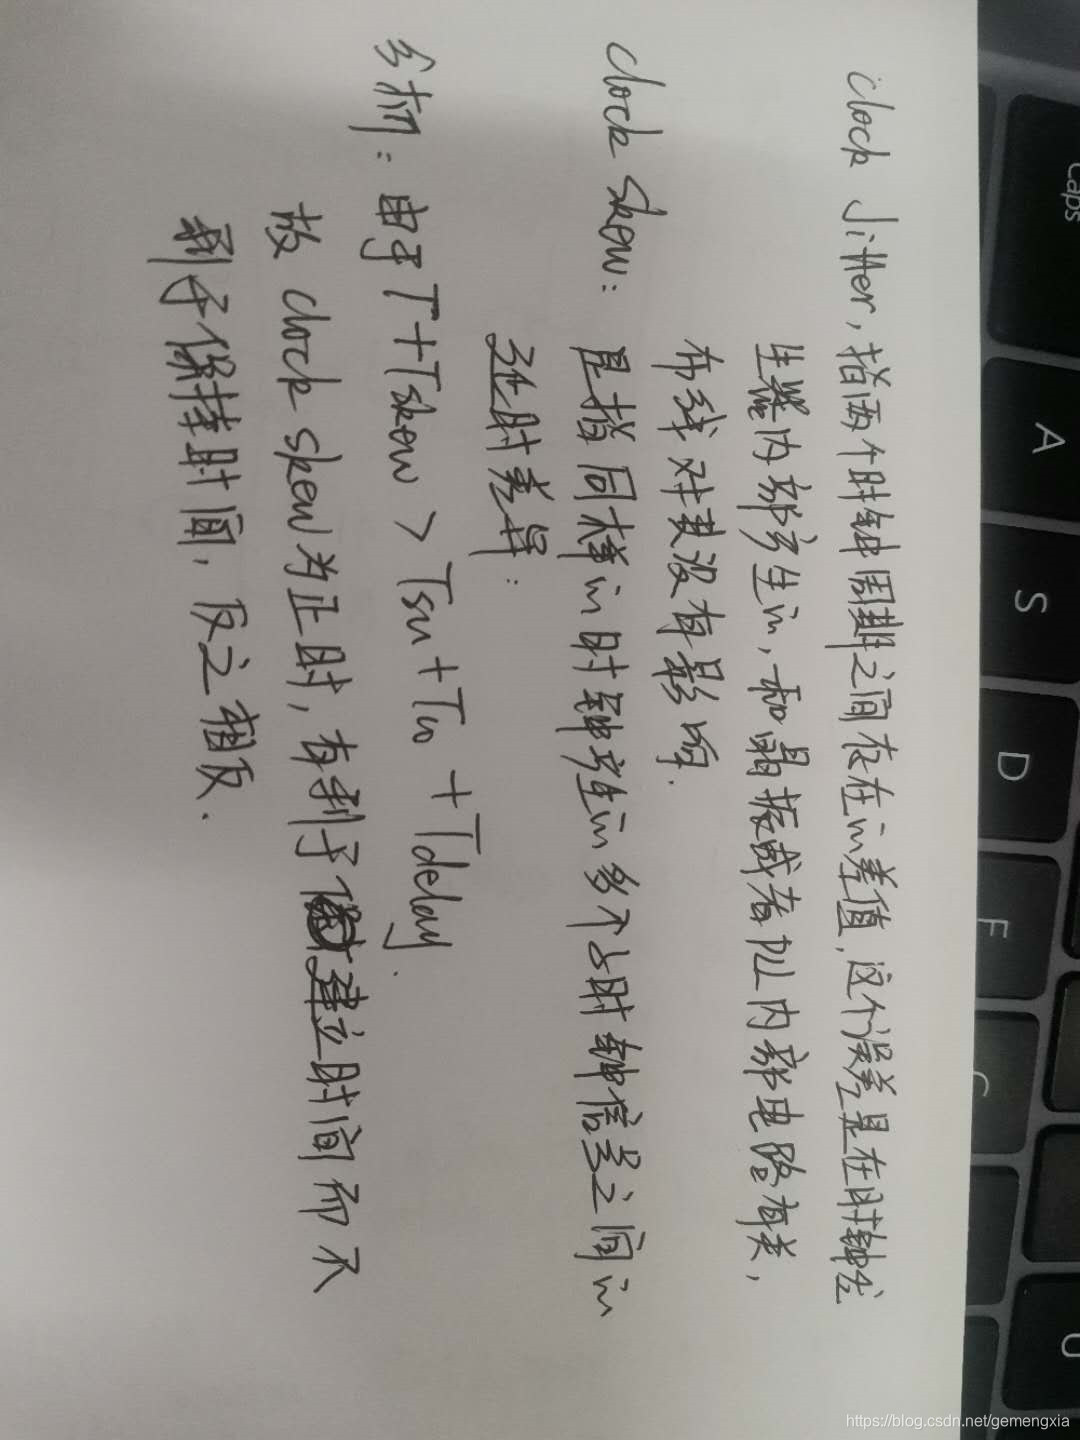 clock Jitter, 指两个时钟周期之间存在的差值,这个误差是在时钟发
生器内部产生的,和晶振或者PLL内部电路有关,
布线对其没有影响.
clock skew: 是指同样的时钟产生的多个子时钟信号之间的
延时差异:
分析: 由于T+Tskew > Tsu+Tco+Tdelay.
故 clock skew为正时,有利于建立时间而不
利于保持时间, 反之相反.
Caps
A
S
D
F
C
U
https://blog.csdn.net/gemengxia